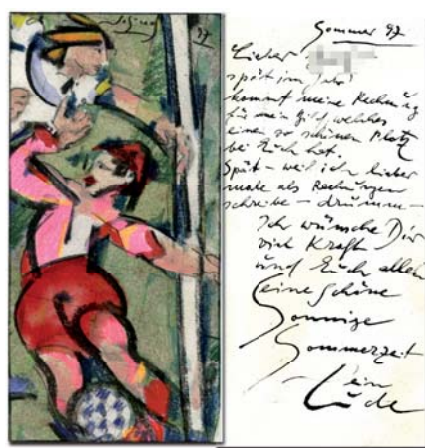 97
Sommer 97
Lieber
spät im Jahr!
kommt meine Rechnung
für mein Bild, welches
einen so schönen Platz
bei Euch hat.
Spät – weil ich lieber
male als Rechnungen
schreibe – drumm –
Ich wünsche Dir
viel Kraft
und Euch allen
eine schöne
Sonnige
Sommerzeit
Lüde